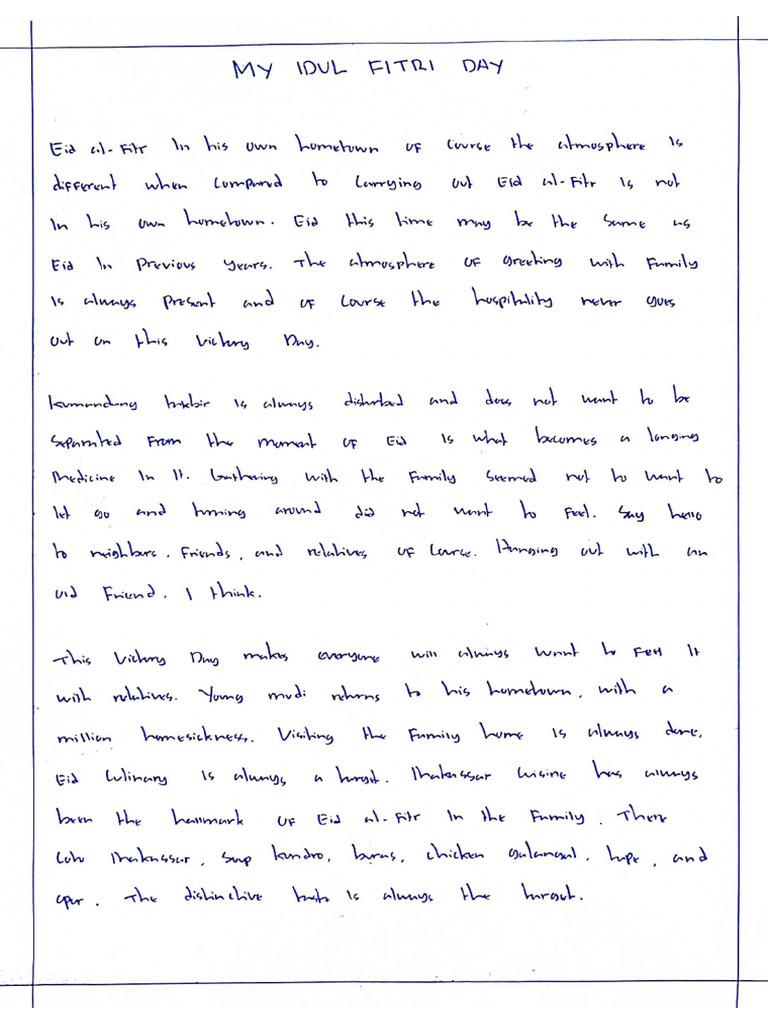 MY IDUL FITRI DAY
Eid al-Fitr In his own hometown of course the atmosphere is
different when compared to carrying out Eid al-Fitr Is not
In his own hometown. Eid this time may be the same as
Eid In Previous Years. The atmosphere of greeting with Family
Is always present and of course the hospitality never goes
out on this Victory Day.
Kumandang takbir Is always disturbed and does not want to be
Separated From the moment of Eid Is what becomes a longing
Medicine In It. Gathering with the Family seemed not to want to
let go and turning around did not want to Feel. Say hello
to neighbors, Friends, and relatives of Course. Hanging out with an
old Friend. I think.
This Victory Day makes everyone will always want to Feel It
with relatives. Young mudi returns to his hometown, with a
million homesickness. Visiting the Family home Is always done.
Eid Culinary Is always a target. Makassar Cuisine has always
been the hallmark of Eid al-Fitr In the Family. There
Coto Makassar, Sup kondro, buras, chicken galangal, tape, and
opor. The distinctive taste Is always the target.